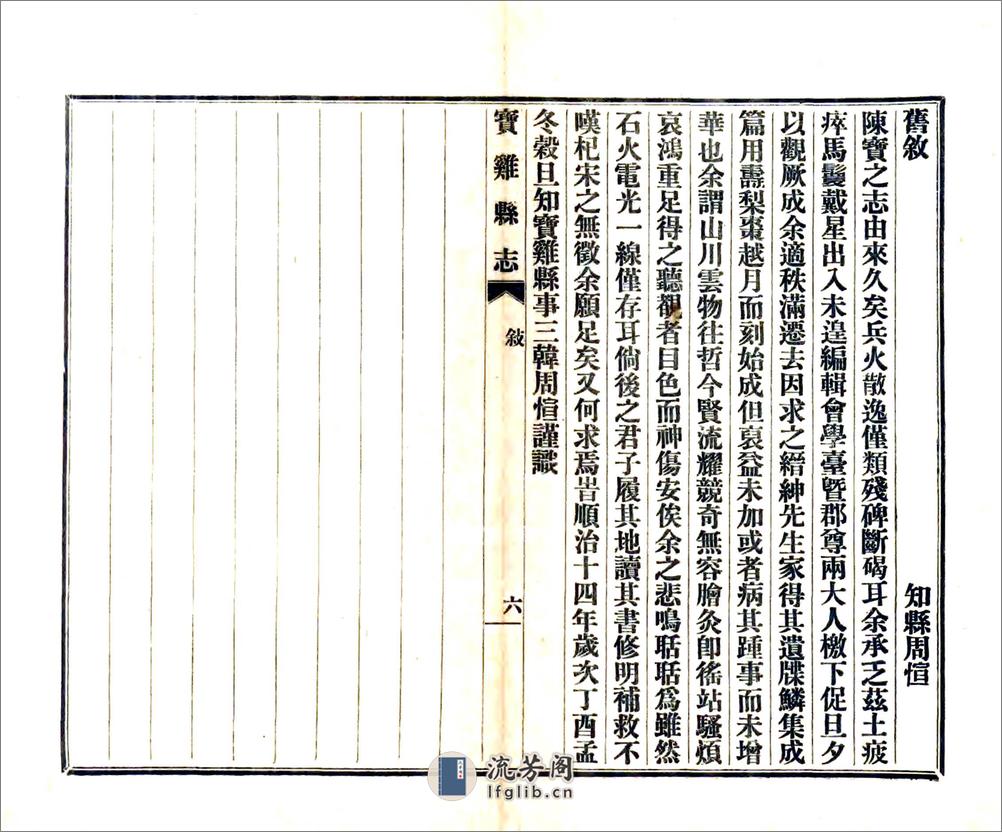 舊敘
知縣周愃
陳寶之志由來久矣兵火散逸僅類殘碑斷碣耳余承乏茲土疲
瘁馬鬘戴星出入未遑編輯會學臺暨郡尊兩大人檄下促旦夕
以觀厥成余適秩滿遷去因求之縉紳先生家得其遺牒鱗集成
篇用壽梨棗越月而刻始成但裒益未加或者病其踵事而未增
華也余謂山川雲物往哲今賢流耀競奇無容膾灸卽徭站騷煩
哀鴻重足得之聽覩者目色而神傷安俟余之悲鳴聒聒爲雖然
石火電光一線僅存耳倘後之君子履其地讀其書修明補救不
嘆杞宋之無徵余願足矣又何求焉旹順治十四年歲次丁酉孟
冬穀旦知寶雞縣事三韓周愃謹識
寶雞縣志
敍
六
流芳阁
lfglib.cn